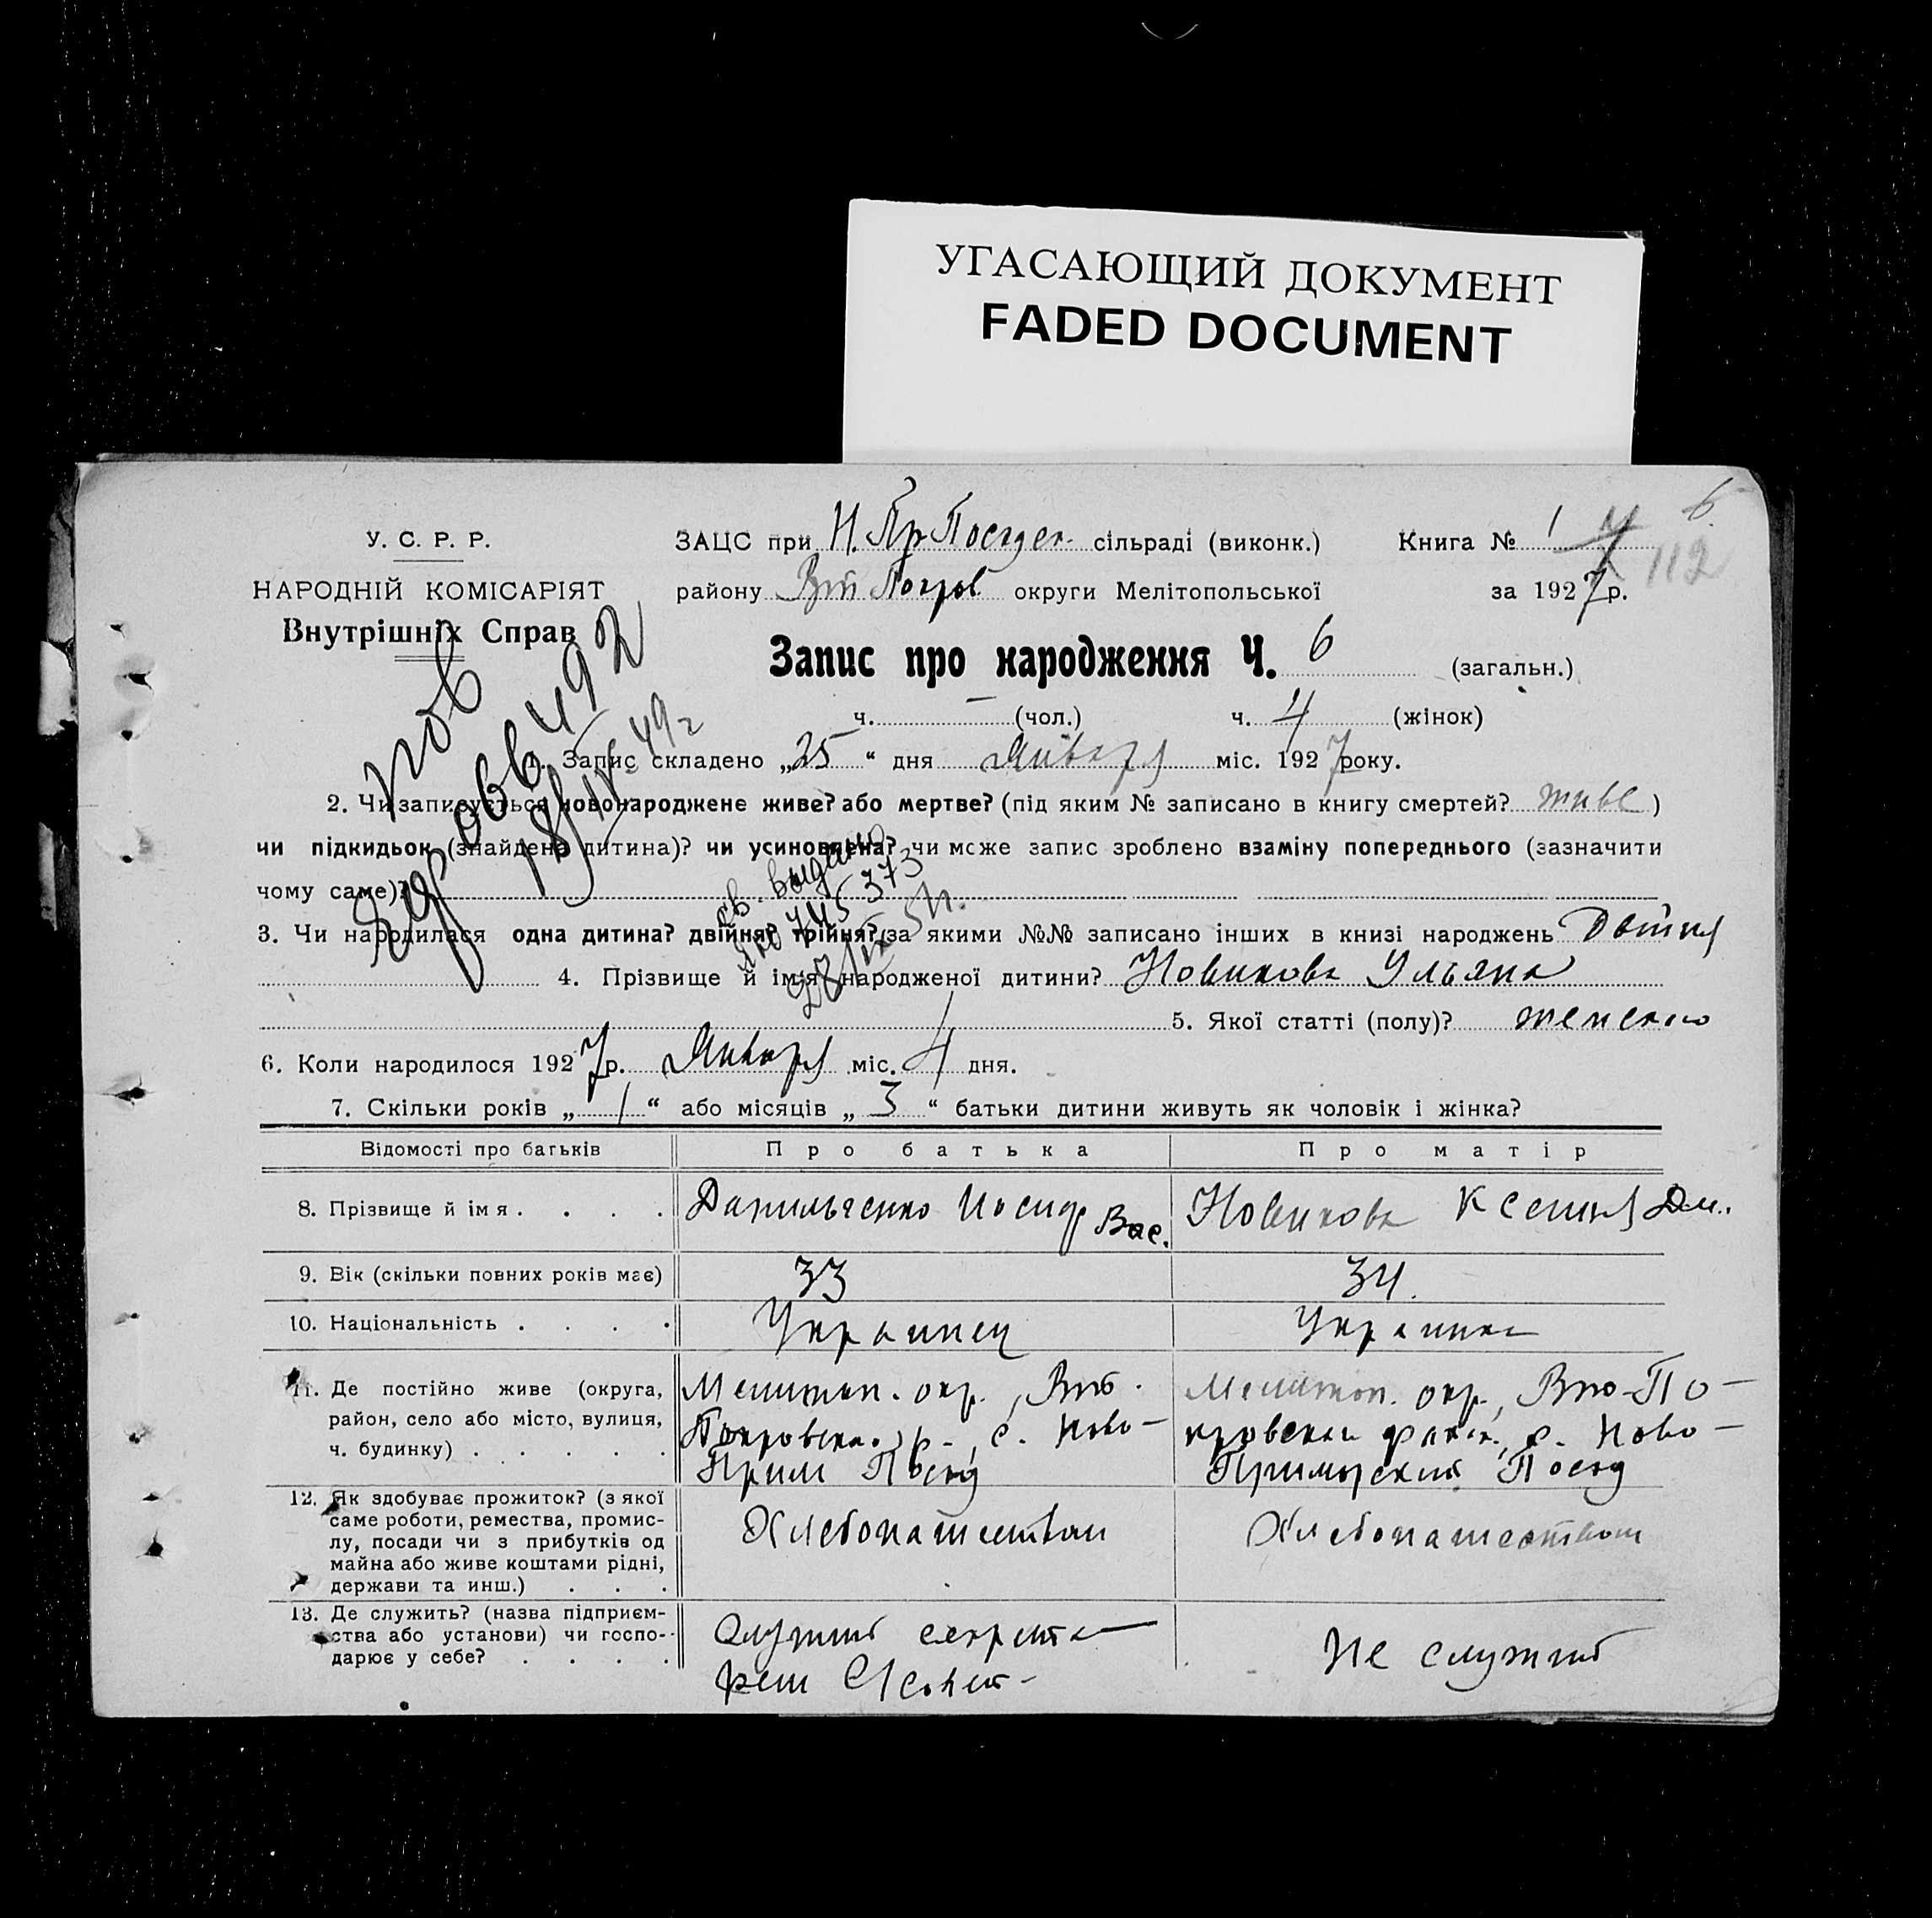 УГАСАЮЩИЙ ДОКУМЕНТ
FADED DOCUMENT
У. С. Р. Р.
НАРОДНІЙ КОМІСАРІЯТ
Внутрішніх Справ
ЗАЦС при Н. Пр Посад сільраді (виконк.)
Книга № 1
6
112
району Вт Покров округи Мелітопольської
за 1927 р.
Запис про народження Ч. 6 (загальн.)
ч. — (чол.) ч. 4 (жінок)
1. Запис складено „25“ дня Января міс. 1927 року.
2. Чи записується новонароджене живе? або мертве? (під яким № записано в книгу смертей? живе)
чи підкидьок (знайдена дитина)? чи усиновлена? чи може запис зроблено взаміну попереднього (зазначити
чому саме)?
3. Чи народилася одна дитина? двійня? трійня? (за якими №№ записано інших в книзі народжень Двійня
4. Прізвище й ім'я народженої дитини? Новикова Ульяна
5. Якої статті (полу)? женско
6. Коли народилося 1927 р. Января міс. 4 дня.
7. Скільки років „1“ або місяців „3“ батьки дитини живуть як чоловік і жінка?
пов
066492
18/IV 49 г
св. выдано
745373
Відомості про батьків Про батька Про матір
8. Прізвище й імя . . . . Данильченко Иосиф Вас. Новикова Ксения Дм.
9. Вік (скільки повних років має) 33 34.
10. Національність . . . . Украинец Украинка
11. Де постійно живе (округа,
район, село або місто, вулиця,
ч. будинку) . . . . .
Мелитоп. окр., Вто-
Покровск. р-, с. Ново-
Прим Посад
Мелитоп. окр., Вто-По-
кровски район, с. Ново-
Приморский Посад
12. Як здобуває прожиток? (з якої
саме роботи, ремества, промис-
лу, посади чи з прибутків од
майна або живе коштами рідні,
держави та инш.) . . .
Хлебопашеством
Хлебопашеством
13. Де служить? (назва підприєм-
ства або установи) чи госпо-
дарює у себе? . . . .
Служит секрета-
рем С/Совет-
Не служит